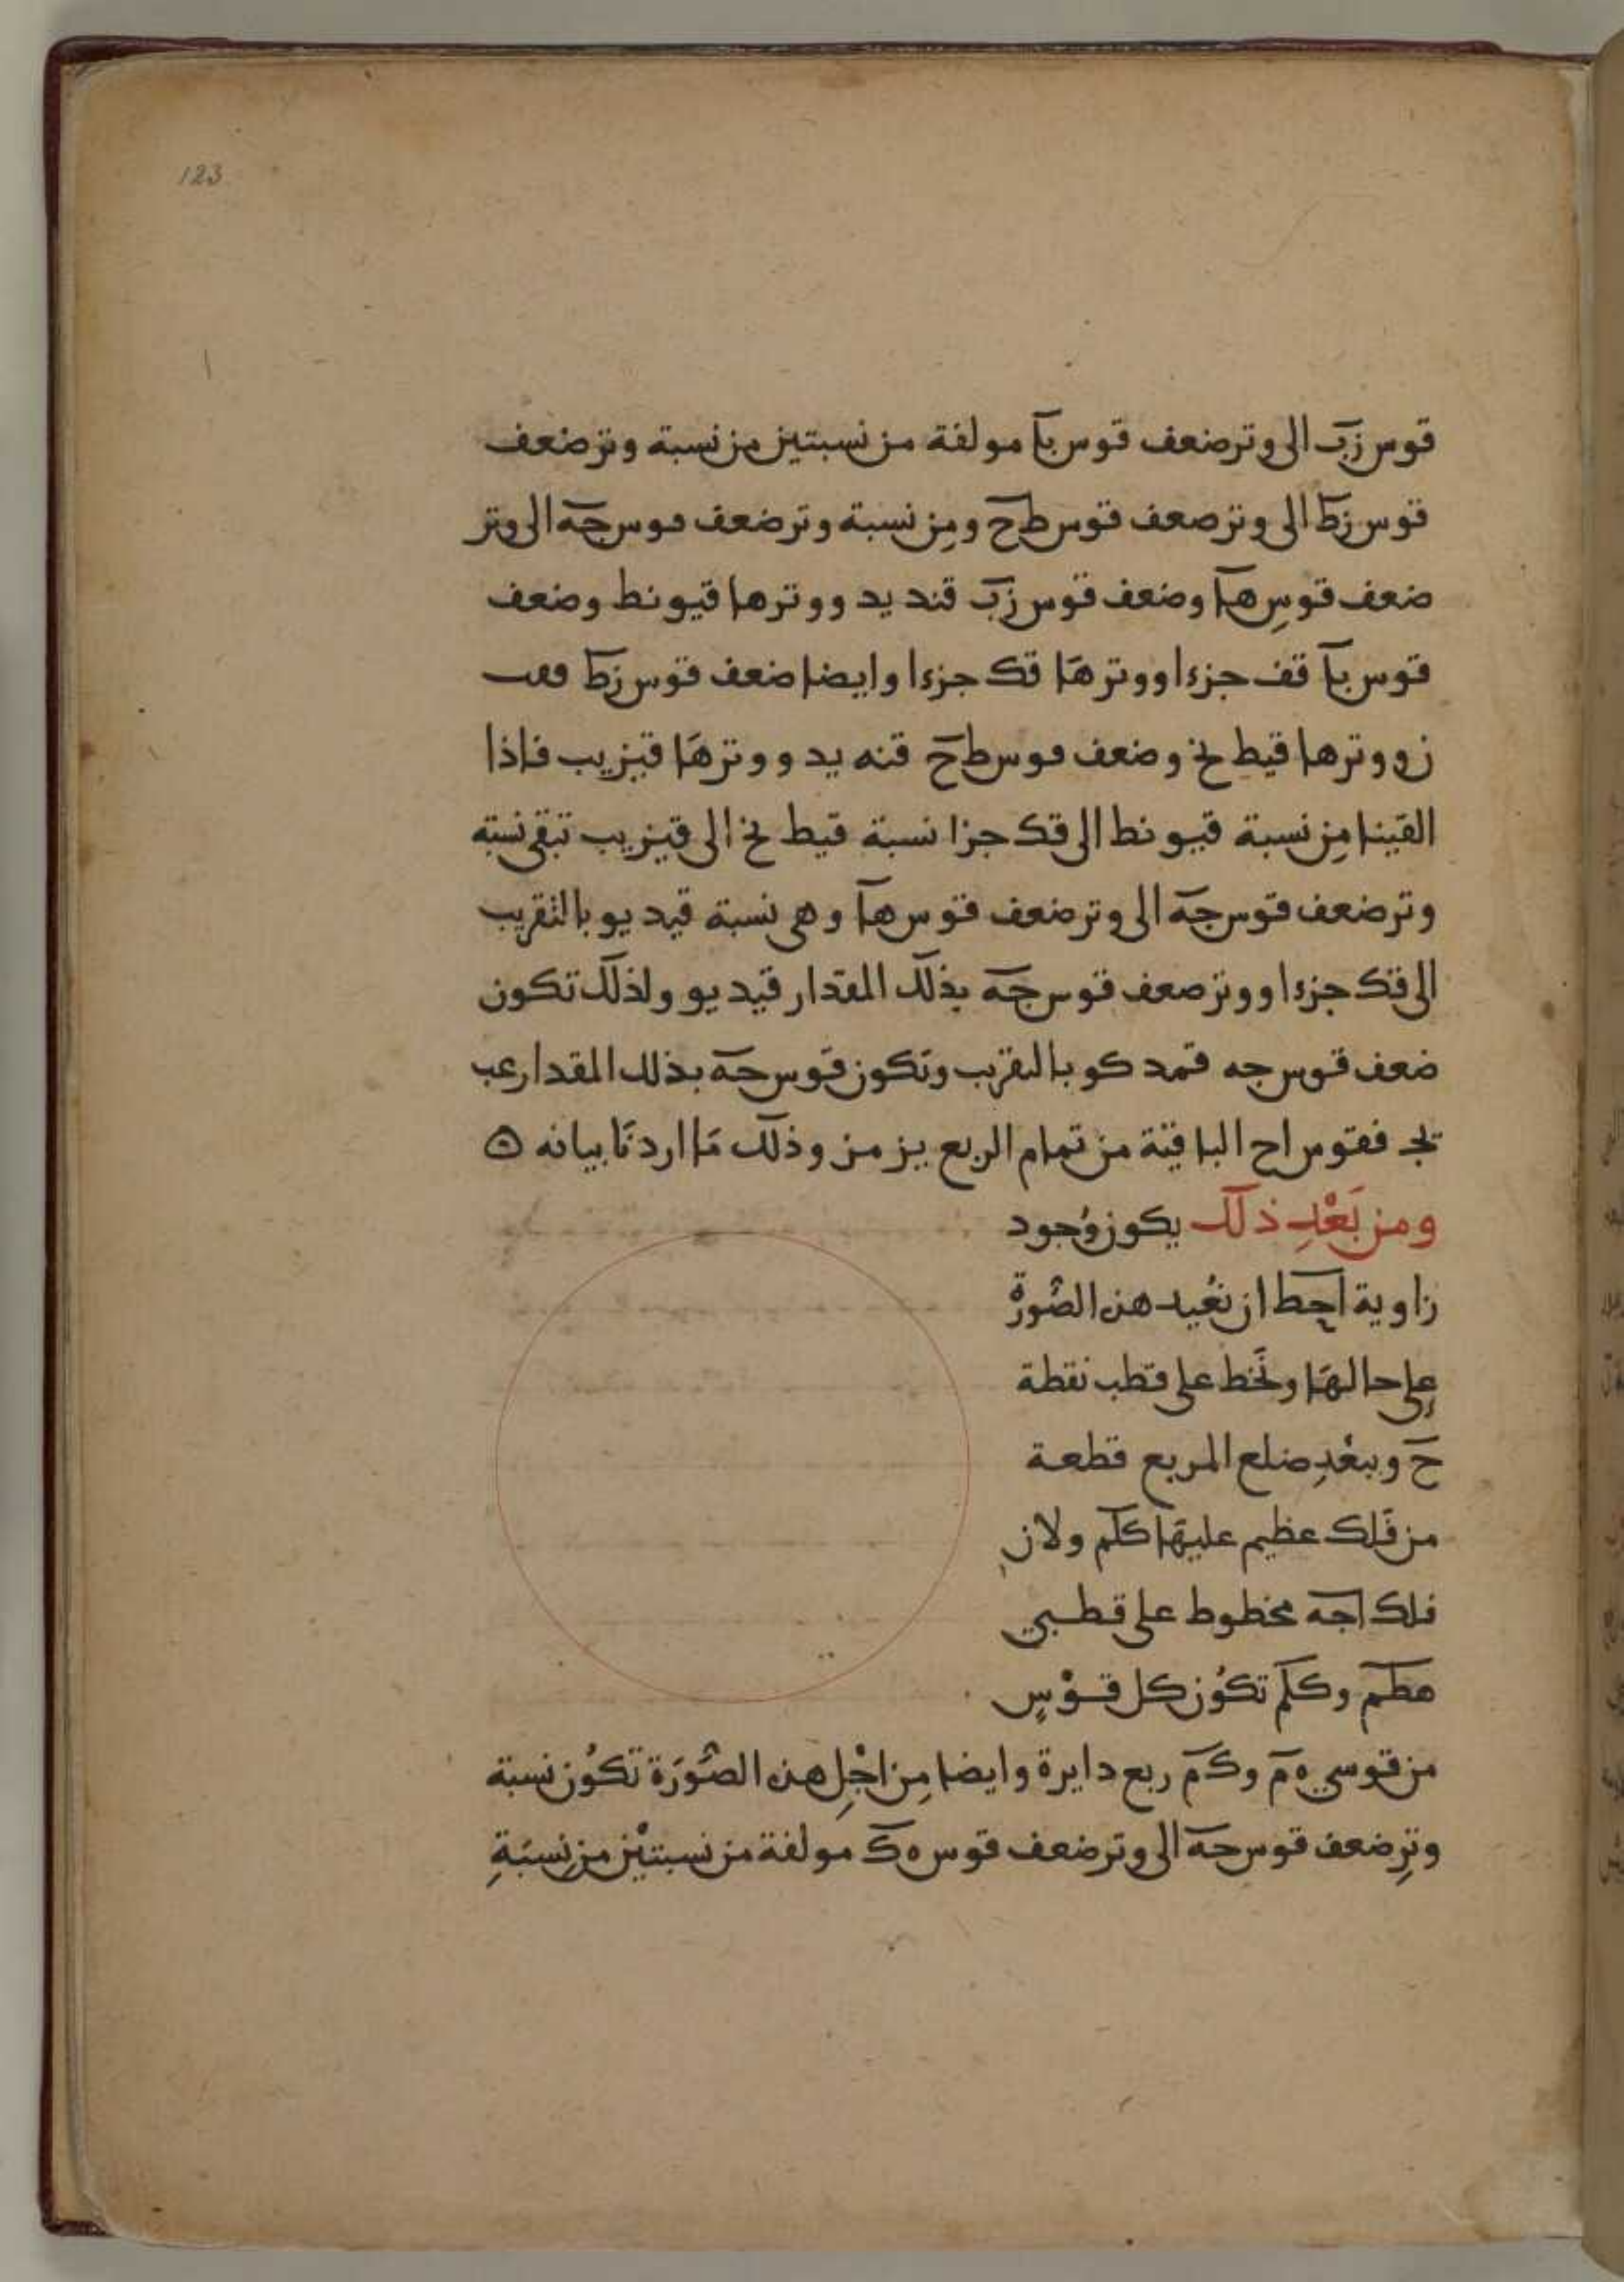 123
قوس زب الى وتر ضعف قوس با مولفة من نسبتين من نسبة وتر ضعف
قوس زط الى وتر ضعف قوس طح ومن نسبة وتر ضعف قوس جه الى وتر
ضعف قوس ها وضعف قوس زب قند يد ووترها قيو نط وضعف
قوس با قف جزءا ووترها قك جزءا وايضا ضعف قوس زط
ز ووترها قيط نح وضعف قوس طح قنه يد ووترها قيز يب فاذا
القينا من نسبة قيو نط الى قك جزا نسبة قيط نح الى قيز يب تبقى نسبة
وتر ضعف قوس جه الى وتر ضعف قوس ها وهى نسبة قيد يو بالتقريب
الى قك جزءا ووتر ضعف قوس جه بذلك المقدار قيد يو ولذلك تكون
ضعف قوس جه قمد كو بالتقريب وتكون قوس حه بذلك المقدار عب
يج فقوس اح الباقية من تمام الربع يز مز وذلك ما اردنا بيانه ه
ومن بَعْدِ ذلك يكون وُجود
زاوية احط ان نُعيد هذه الصُّورةُ
على حالهَا ونَخط على قطب نقطة
حَ وببعْدِ ضلع المربع قطعة
من فَلِك عظيم عليهَا كلم ولان
فلك اجه مخطوط على قطبي
هطم وكلم تكوُن كل قوْسٍ
من قوسي ه م وكم ربع دايرة وايضا مِن اجْلِ هذه الصُّوَرَة تكوُن نسبة
وترِ ضعف قوس حه الى وتر ضعف قوس ه ك مولفة من نسبتيْن من نِسبَةِ